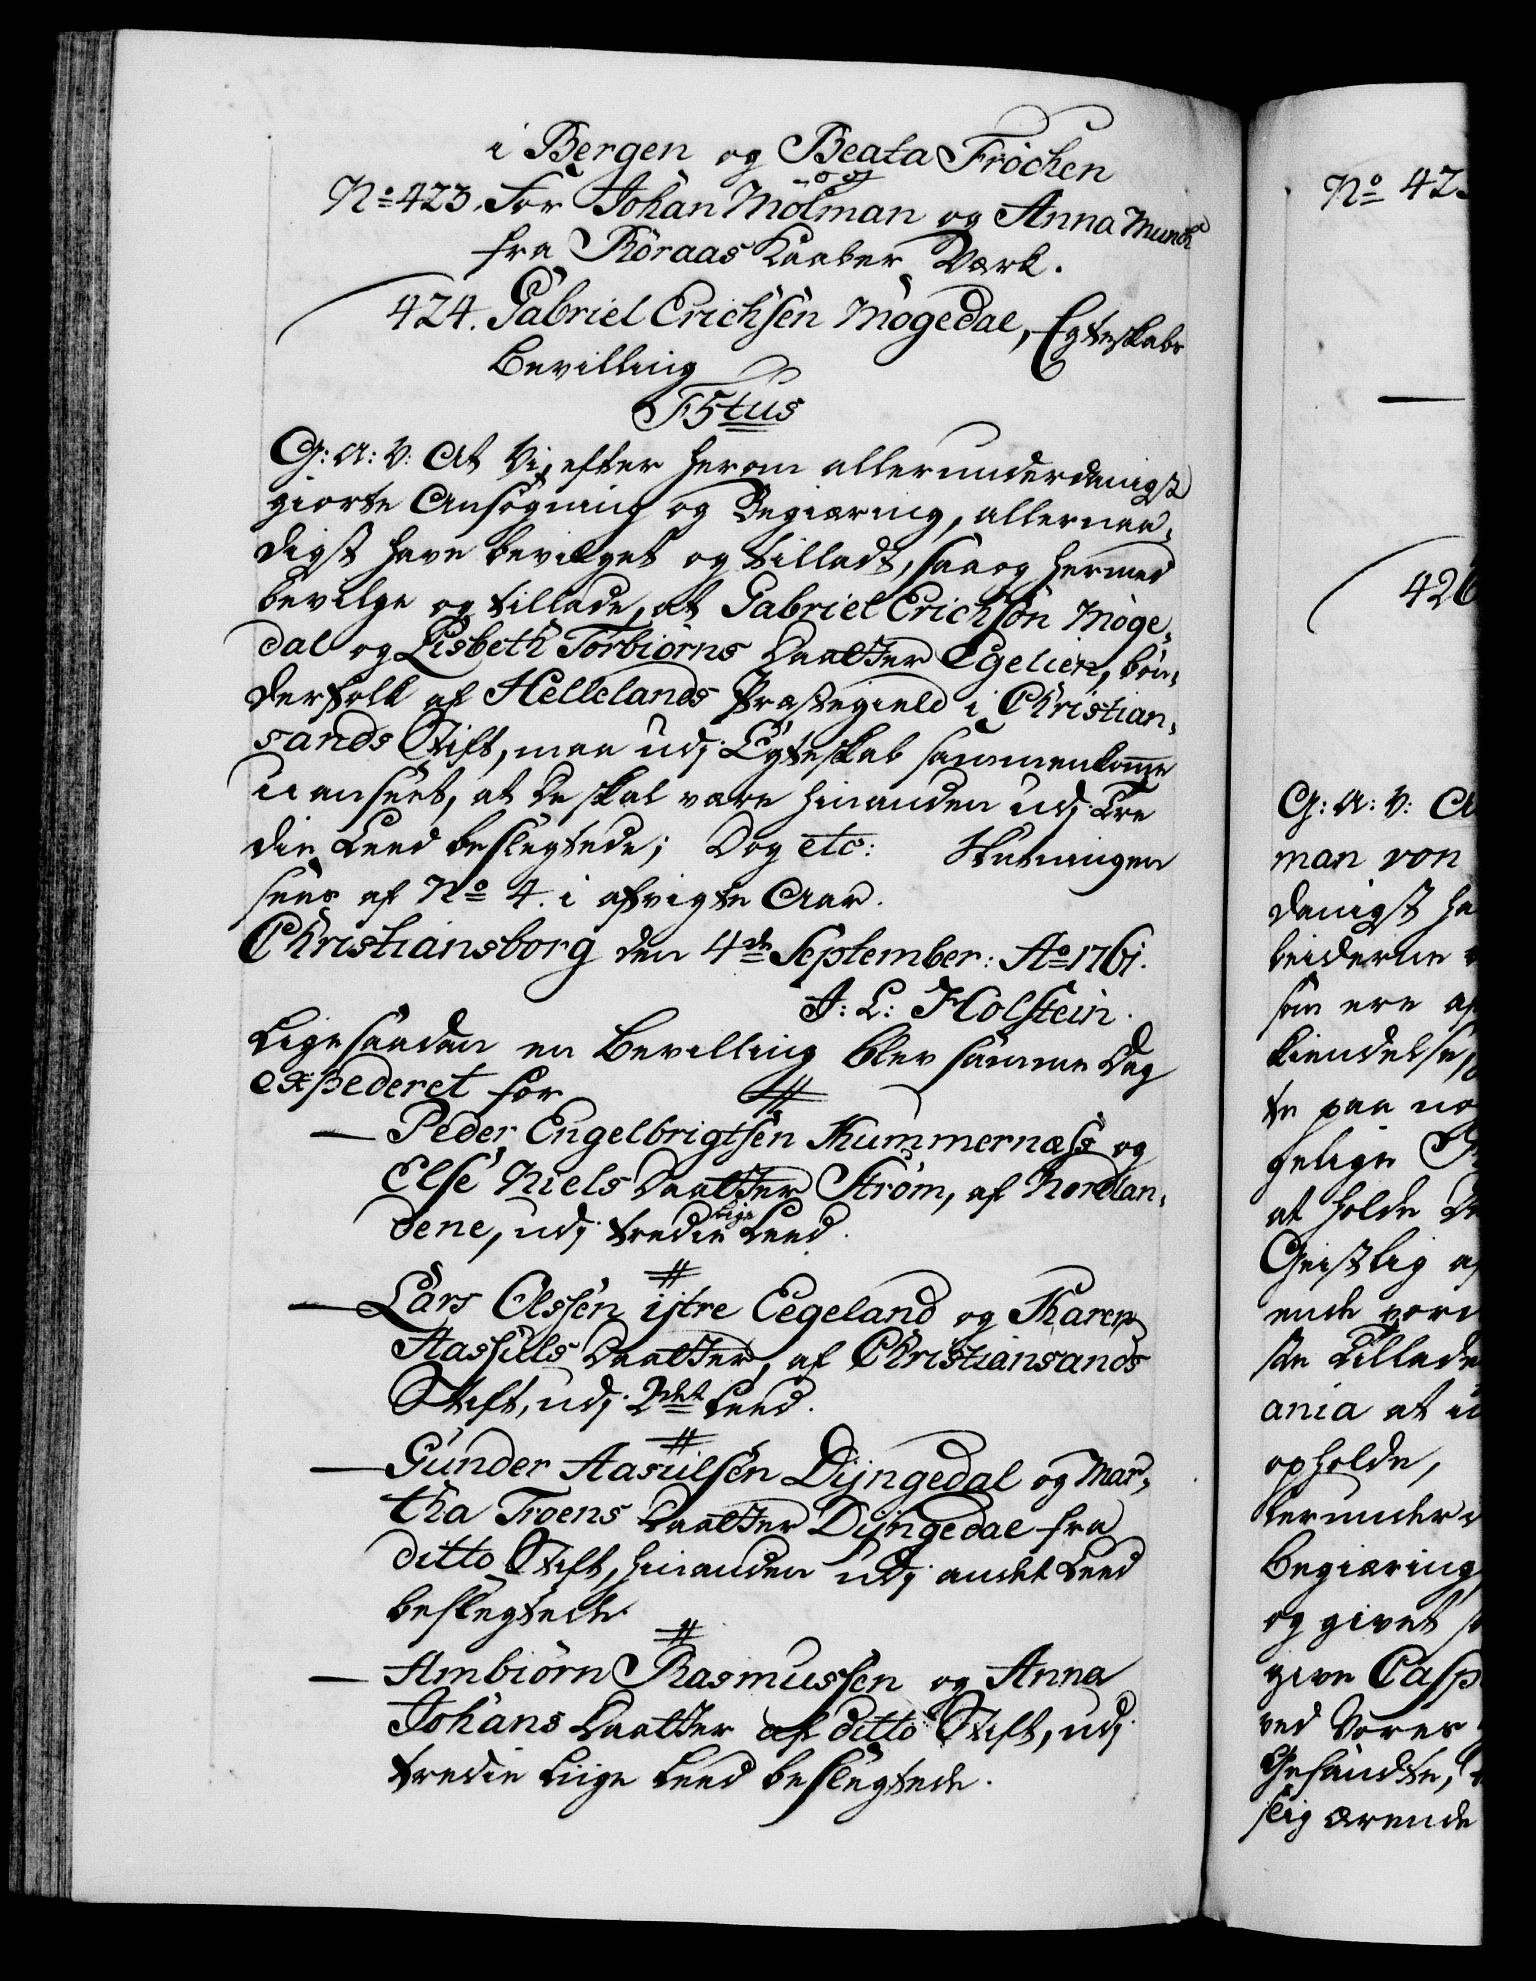 i Bergen og Beata Frøchen
No 423. For Johan Mølman og Anna Munch
fra Røraas Kaaber Værk.
424. Gabriel Erichsen Mögedal, Egteskabs
Bevilling
F5tus
G: A: V: At Vi, efter herom allerunderdanigst
giorte Ansøgning og Begiæring, allernaa-
digst have bevilget og tilladt, saa og hermed
bevilge og tillade, at Gabriel Erichsøn Möge-
dal og Lisbeth Torbiørns Daatter Egelien, bøn-
derfolk af Hellelands Præstegield i Christian-
sands Stift, maa udj Egteskab sammenkomme
u anseet, at de skal være hinanden udj Tre
die Leed beslegtede; Dog etc: Slutningen
sees af No 4. i afvigte Aar.
Christiansborg den 4de September: Ao 1761.
J: L: Holstein.
Ligesaadan en Bevilling blev samme Dag
expederet for
Peder Engelbrigtsen Kummernæss og
Else Niels Daatter Strøm, af Nordlan-
dene, udj tredie lige Leed.
Lars Olssen ijtre Eegeland og Karen
Aassuls Daatter, af Christiansands
Stift, udj 2det Leed.
Gunder Aasulsen Dijngedal og Mar-
tha Troens Daatter Dijngedal fra
ditto Stift, hinanden udj andet Leed
beslegtede
Ambiørn Rasmussen og Anna
Johans Daatter af ditto Stift, udj
tredie liige Leed beslegtede.
No 425
426
G: A: V: A
man von
danigst ha
beiderne
søn ere af
kiendelse,
te paa no
gelige
at holde De
Geistlig af
ende vord
ste Tillade
ania at u
opholde,
lerunderd
Begiæring
og givet s
give Casp
ved Vores
Gesandte,
slig Ærende